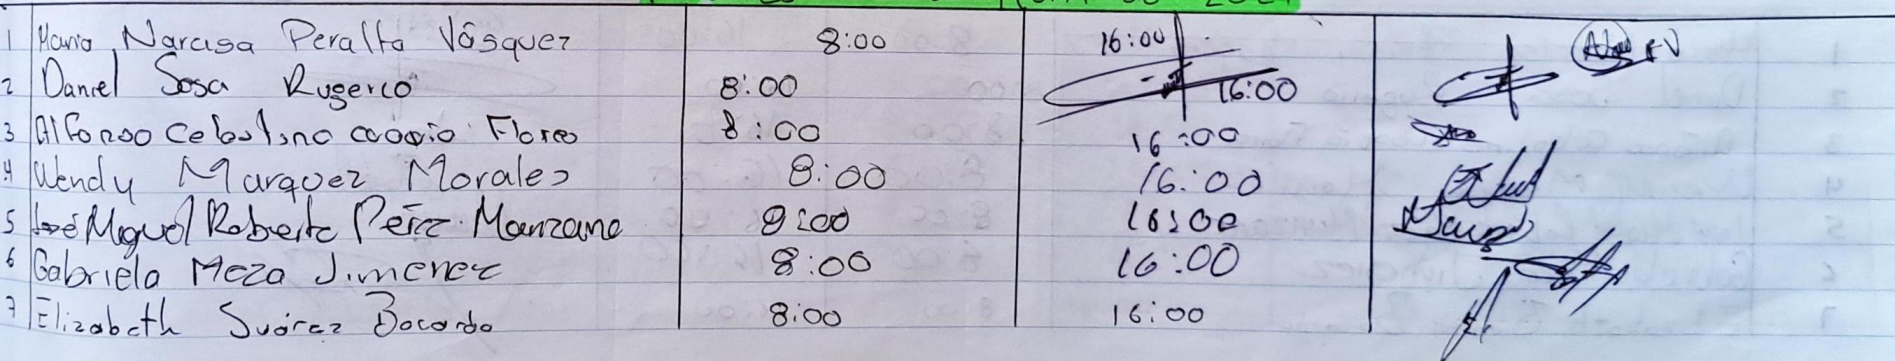 1 Maria Narcisa Peralta Vásquez 8:00 16:00
2 Daniel Sosa Rugerco 8:00 16:00
3 Alfonso Flores 8:00 16:00
4 Wendy Marquez Morales 8:00 16:00
5 José Miguel Roberto Pérez Manzano 8:00 16:00
6 Gabriela Meza Jimenez 8:00 16:00
7 Elizabeth Suárez Bocardo 8:00 16:00